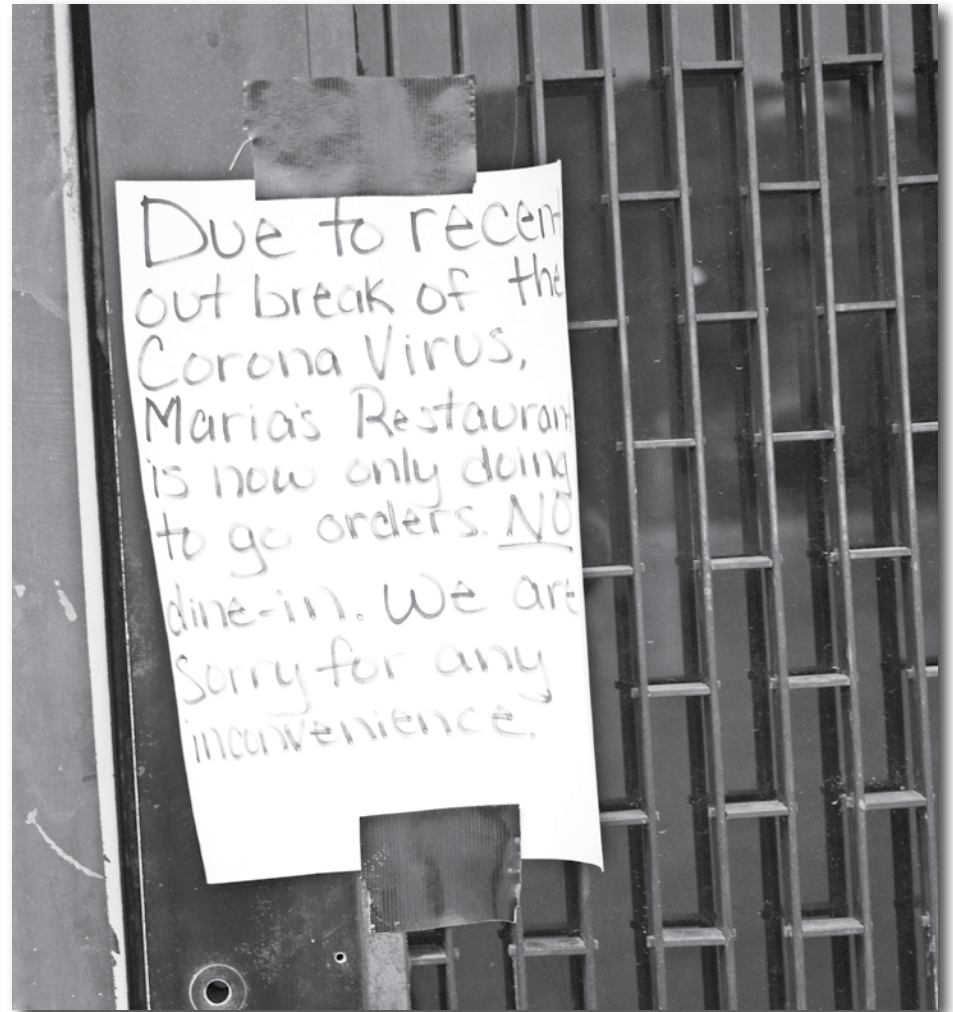 Due to recent
out break of the
Corona Virus,
Maria's Restaurant
is now only doing
to go orders. NO
dine-in. We are
Sorry for any
inconvenience.